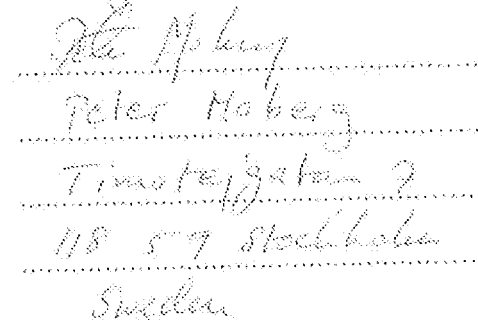 Peter Moberg
Peter Moberg
Timotejgatan 9
118 59 Stockholm
Sweden